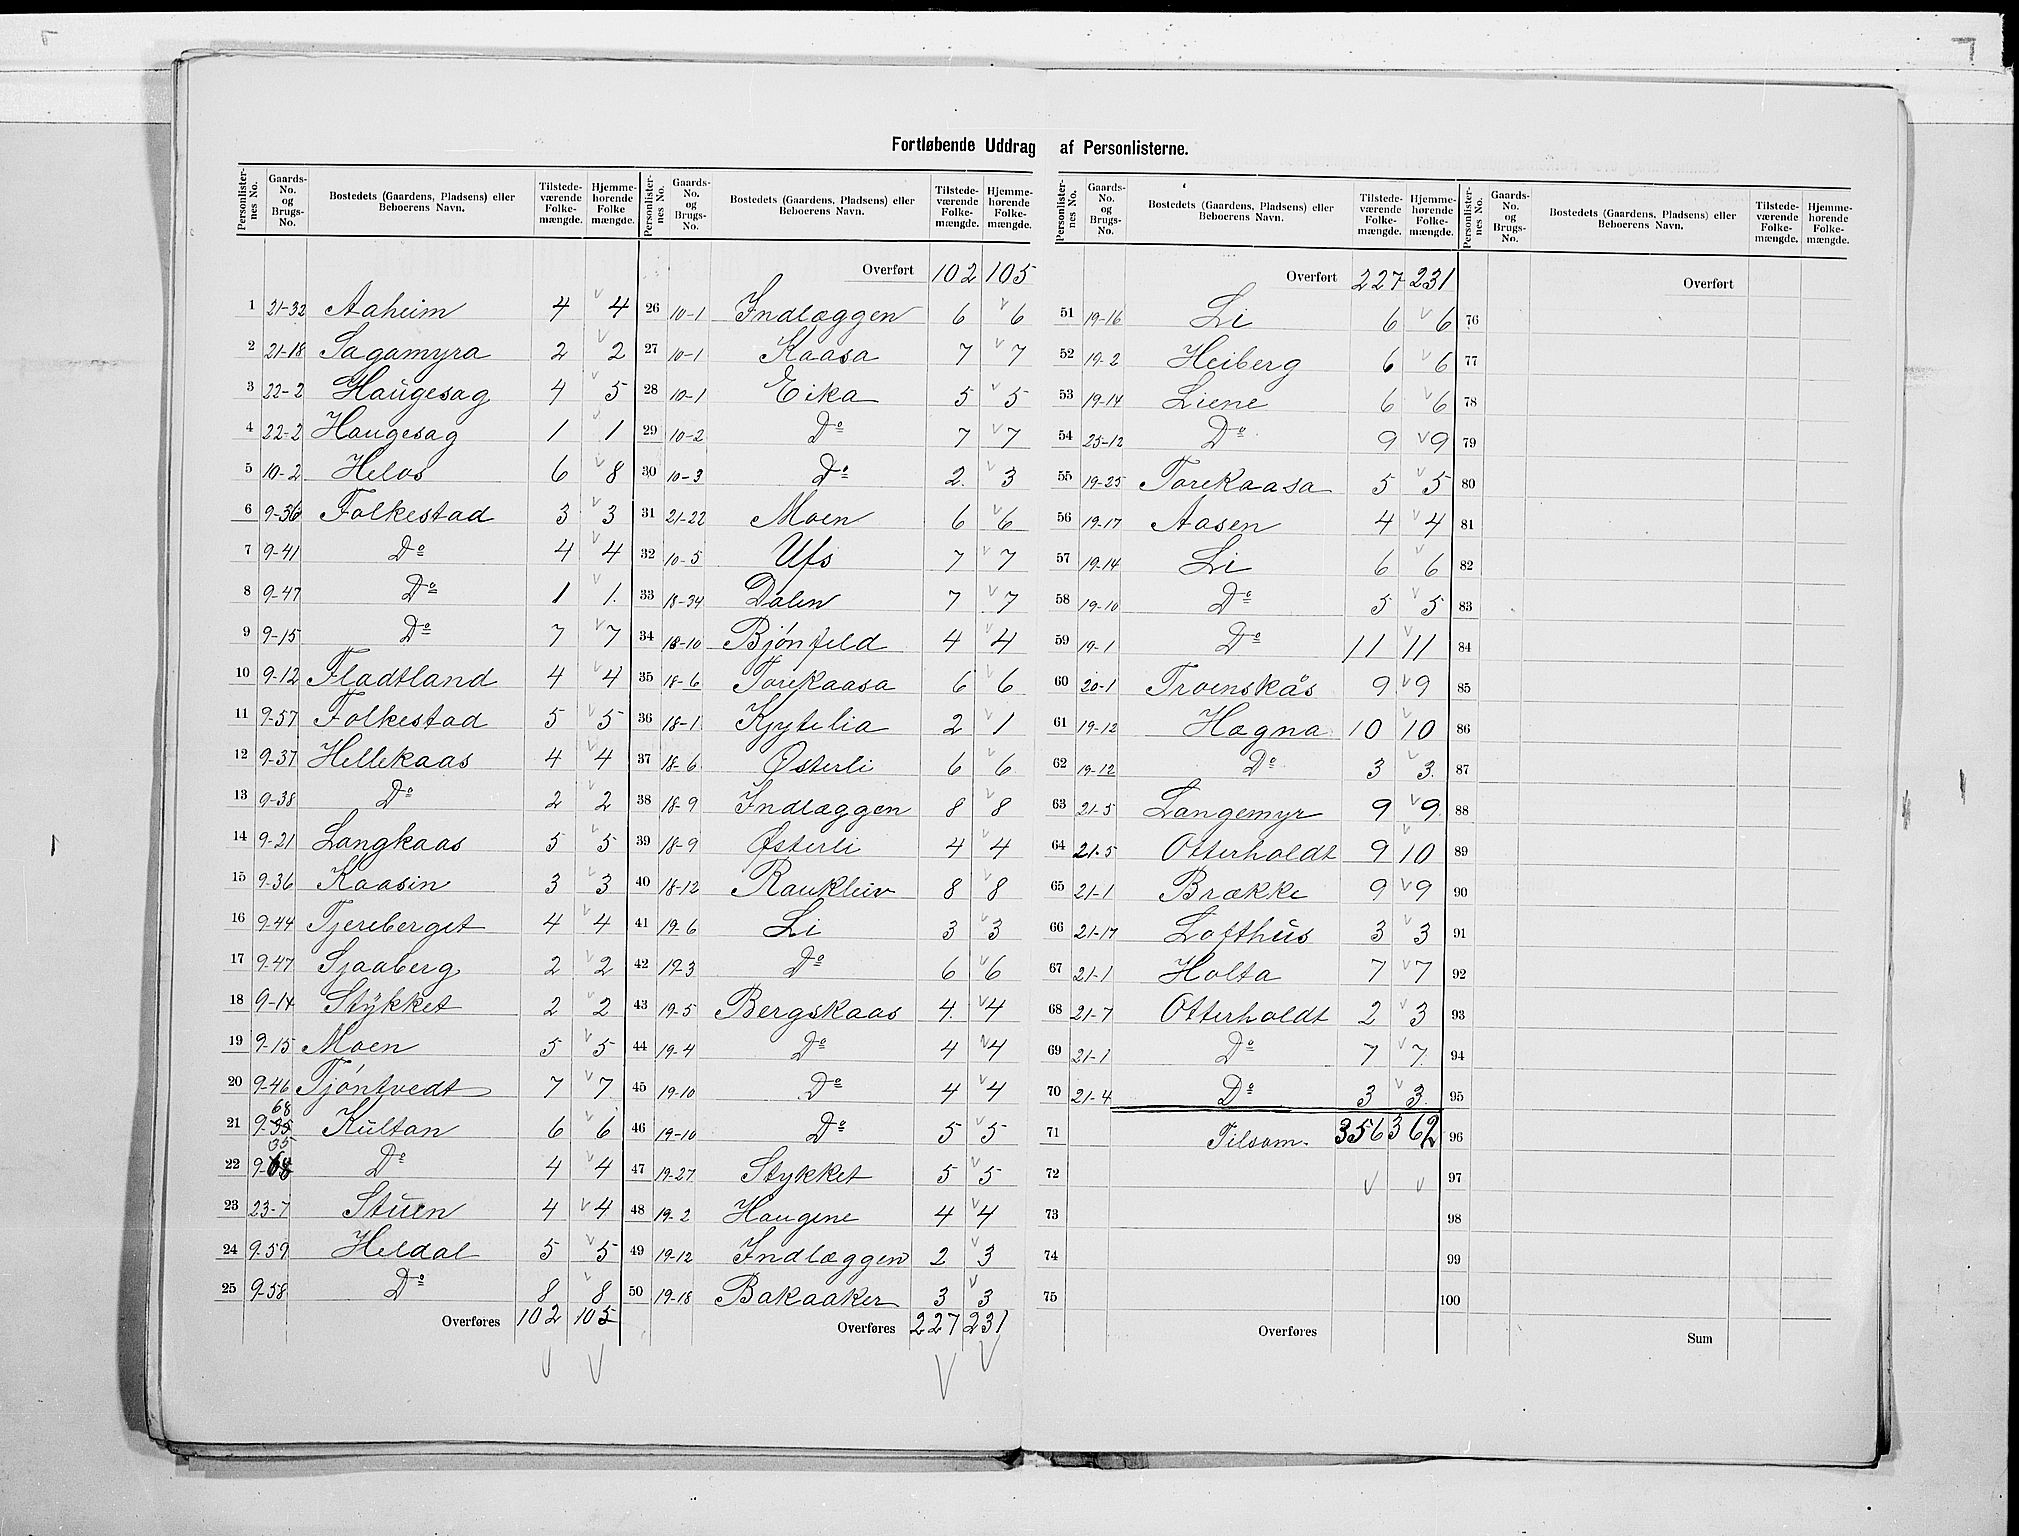 Fortløbende Uddrag af Personlisterne.
Personlister-nes No. | Gaards-No. og Brugs-No. | Bostedets (Gaardens, Pladsens) eller Beboerens Navn. | Tilstede-værende Folke-mængde. | Hjemme-hørende Folke mængde.
1 21-32 Aaheim 4 4
2 21-18 Sagamyra 2 2
3 22-2 Haugesag 4 5
4 22-2 Haugesag 1 1
5 10-2 Helos 6 8
6 9-36 Folkestad 3 3
7 9-41 Do 4 4
8 9-47 Do 1 1.
9 9-15 Do 7 7
10 9-12 Fladtland 4 4
11 9-57 Folkestad 5 5
12 9-37 Hellekaas 4 4
13 9-38 Do 2 2
14 9-21 Langkaas 5 5
15 9-36 Kaasin 3 3
16 9-44 Tjereberget 4 4
17 9-47 Sjaaberg 2 2
18 9-14 Stykket 2 2
19 9-15 Moen 5 5
20 9-46 Tjöntvedt 7 7
21 9-68 Kultan 6 6
22 9-35 Do 4 4
23 23-7 Stuen 4 4
24 9-59 Heldal 5 5
25 9-58 Do 8 8
Overføres 102 105
Personlister-nes No. | Gaards-No. og Brugs-No. | Bostedets (Gaardens, Pladsens) eller Beboerens Navn. | Tilstede-værende Folke-mængde. | Hjemme-hørende Folke-mængde.
Overført 102 105
26 10-1 Indlæggen 6 6
27 10-1 Kaasa 7 7
28 10-1 Eika 5 5
29 10-2 Do 7 7
30 10-3 Do 2 3
31 21-22 Moen 6 6
32 10-5 Ufs 7 7
33 18-34 Dalen 7 7
34 18-10 Bjönfeld 4 4
35 18-6 Torekaasa 6 6
36 18-1 Kjytelia 2 1
37 18-6 Østerli 6 6
38 18-9 Indlæggen 8 8
39 18-9 Østerli 4 4
40 18-12 Raukleiv 8 8
41 19-6 Li 3 3
42 19-3 Do 6 6
43 19-5 Bergskaas 4 4
44 19-4 Do 4 4
45 19-10 Do 4 4
46 19-10 Do 5 5
47 19-27 Stykket 5 5
48 19-2 Haugene 4 4
49 19-12 Indlæggen 2 3
50 19-18 Bakaaker 3 3
Overføres 227 231
Personlister-nes No. | Gaards-No. og Brugs-No. | Bostedets (Gaardens, Pladsens) eller Beboerens Navn. | Tilstede-værende Folke-mængde. | Hjemme-hørende Folke-mængde.
Overført 227 231
51 19-16 Li 6 6
52 19-2 Heiberg 6 6
53 19-14 Liene 6 6
54 25-12 Do 9 9
55 19-25 Torekaasa 5 5
56 19-17 Aasen 4 4
57 19-14 Li 6 6
58 19-10 Do 5 5
59 19-1 Do 11 11
60 20-1 Troenskås 9 9
61 19-12 Hagna 10 10
62 19-12 Do 3 3.
63 21-5 Langemyr 9 9
64 21-5 Otterholdt 9 10
65 21-1 Brække 9 9
66 21-17 Lofthus 3 3
67 21-1 Holta 7 7
68 21-7 Otterholdt 2 3
69 21-1 Do 7 7.
70 21-4 Do 3 3.
71 Tilsam. 356 362
72
73
74
75
Overføres
Personlister-nes No. | Gaards-No. og Brugs-No. | Bostedets (Gaardens, Pladsens) eller Beboerens Navn. | Tilstede-værende Folke-mængde. | Hjemme-hørende Folke-mængde.
Overført
76
77
78
79
80
81
82
83
84
85
86
87
88
89
90
91
92
93
94
95
96
97
98
99
100
Sum